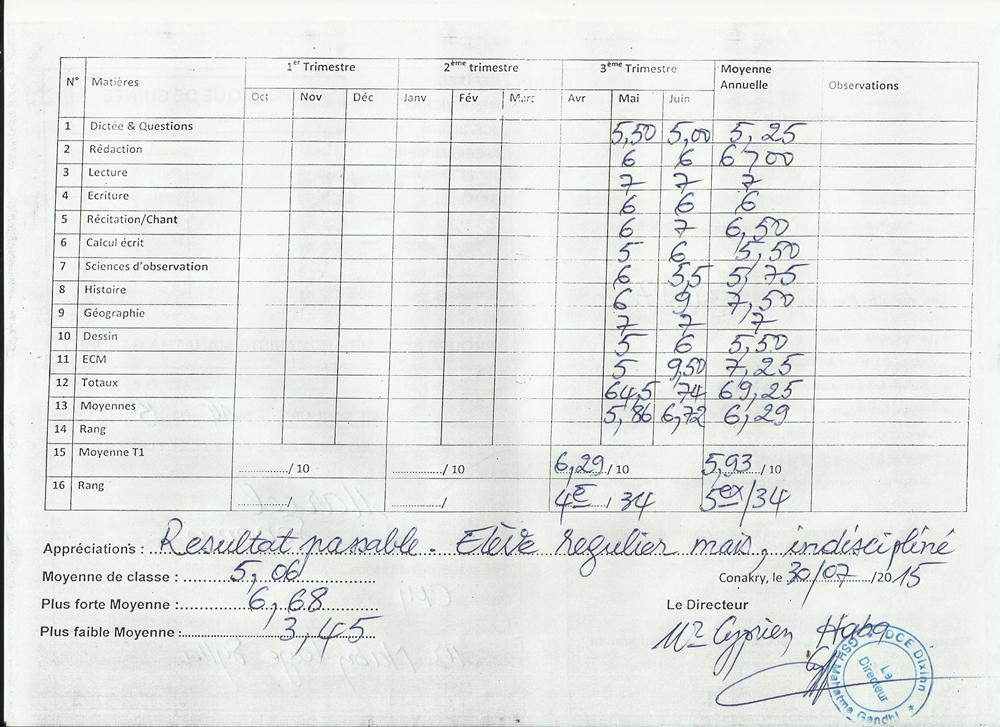 N° Matières 1er Trimestre 2ème trimestre 3ème Trimestre Moyenne Annuelle Observations
Oct Nov Déc Janv Fév Mars Avr Mai Juin
1 Dictée & Questions 5,50 5,00 5,25
2 Rédaction 6 6 6,00
3 Lecture 7 7 7
4 Ecriture 6 6 6
5 Récitation/Chant 6 7 6,50
6 Calcul écrit 5 6 5,50
7 Sciences d'observation 6 5,5 5,75
8 Histoire 6 9 7,50
9 Géographie 7 7 7
10 Dessin 5 6 5,50
11 ECM 5 9,50 7,25
12 Totaux 64,5 74 69,25
13 Moyennes 5,86 6,72 6,29
14 Rang
15 Moyenne T1 ............../ 10 ............../ 10 6,29 / 10 5,93 / 10
16 Rang ............../ ............../ 4e / 34 5ex/34
Appréciations : Resultat passable. Elève regulier mais, indiscipliné
Moyenne de classe : 5,06
Conakry, le 30/07 /2015
Plus forte Moyenne : 6,68
Le Directeur
Plus faible Moyenne : 3,45
Mr Cyprien Haba
GSH Mahatma Gandhi * DCE Dixinn *
Le Directeur